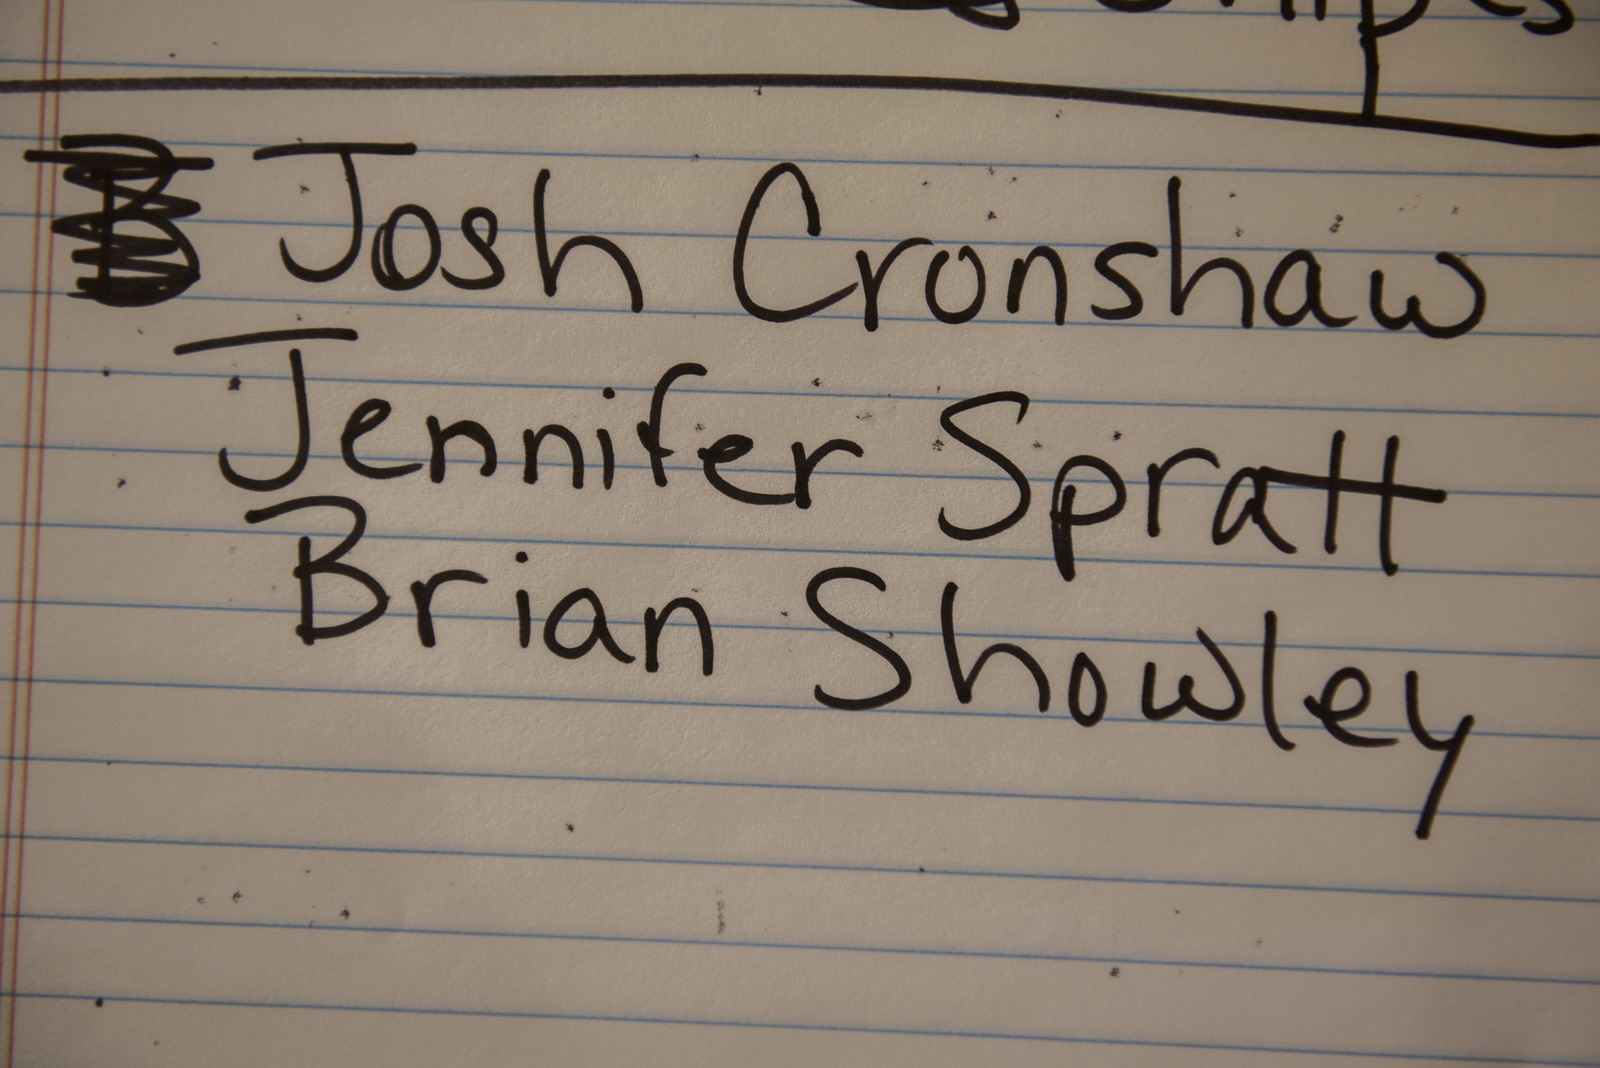 Josh Cronshaw
Jennifer Spratt
Brian Showley